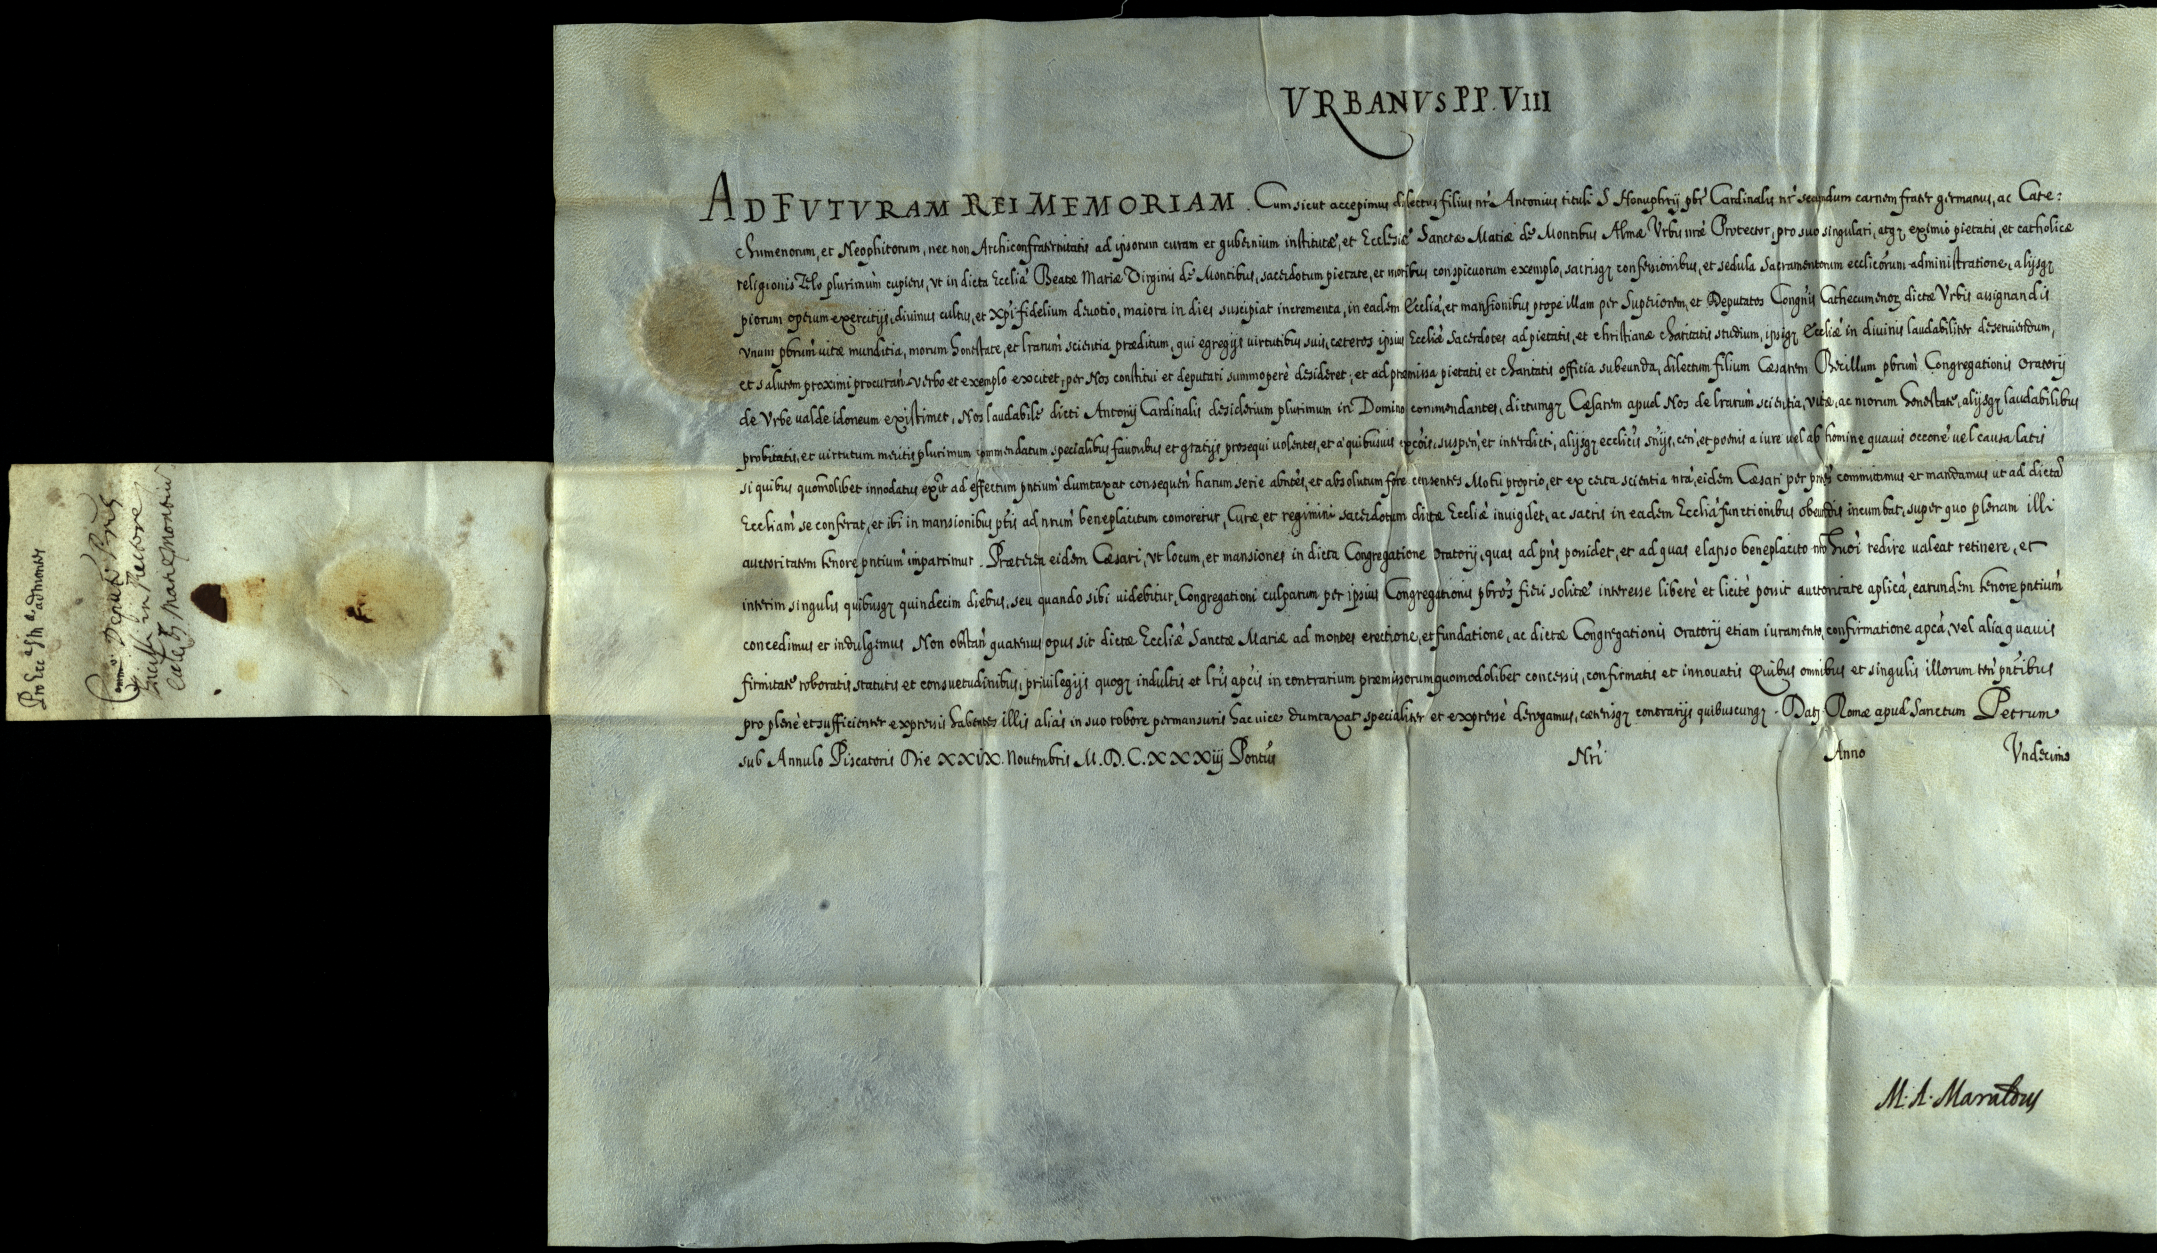 URBANUS PP. VIII
AD FUTURAM REI MEMORIAM. Cum sicut accepimus dilectus filius nr̃ Antonius tituli S Honuphrij pbr̃ Cardinalis nr̃ secundum carnem frater germanus, ac Cate:
chumenorum, et Neophitorum, nec non Archiconfraternitatis ad ipsorum curam et gubernium institutæ, et Ecclesiæ Sanctæ Mariæ de Montibus Almæ Urbis nr̃æ Protector, pro suo singulari, atq; eximio pietatis, et catholicæ
religionis Zelo plurimùm cupiens, ut in dicta Ecclià Beatæ Mariæ Virginis de Montibus, sacerdotum pietate, et moribus conspicuorum exemplo, sacrisq; confessionibus, et sedula Sacramentorum ecclicorum administratione, alijsq;
piorum operum exercitijs, divinus cultus, et Xp̃i fidelium devotio, maiora in dies suscipiat incrementa, in eadem Ecclià, et mansionibus prope illam per Superiorem, et Deputatos Congñis Cathecumenoꝝ dictæ Urbis assignandis
unum pbrum̃ vitæ munditia, morum honestate, et lrarum̃ scientia præditum, qui egregijs virtutibus suis, cæteros ipsius Eccliæ Sacerdotes ad pietatis, et christianæ charitatis studium, ipsiq; Eccliæ in divinis laudabiliter deserviendum,
et salutem proximi procurañ verbo et exemplo excitet, per Nos constitui et deputari summoperè desideret, et ad præmissa pietatis et charitatis officia subeunda, dilectum filium Cæsarem pbrum̃ Congregationis Oratorij
de Urbe valde idoneum existimet, Nos laudabile dicti Antonij Cardinalis desiderium plurimum in Domino commendantes, dictumq; Cæsarem apud Nos de lrarum̃ scientia, vitæ, ac morum honestate, alijsq; laudabilibus
probitatis, et virtutum meritis plurimum commendatum specialibus favoribus et gratijs prosequi volentes, et à quibusuis excois, suspeñ, et interdicti, alijsq; ecclicis sñijs, ceñ, et poenis a iure vel ab homine quavis occone vel causa latis
si quibus quomolibet innodatus exĩt ad effectum pntium dumtaxat consequeñ harum serie absñtes, et absolutum fore censentes Motu proprio, et ex certa scientia nrà, eidem Cæsari per pñtes committimus et mandamus ut ad dictã
Eccliam se conferat, et ibi in mansionibus ptis ad nrum̃ beneplacitum comoretur, Curæ et regimini sacerdotum dictæ Eccliæ invigilet, ac sacris in eadem Ecclià functionibus obeundis incumbat, super quo plenam illi
auctoritatem tenore pntium impartimur. Præterea eidem Cæsari, ut locum, et mansiones in dicta Congregatione oratorij, quas ad pñs possidet, et ad quas elapso beneplacito nr̃o hmòi redire valeat retinere, et
interim singulis quibusq; quindecim diebus, seu quando sibi videbitur, Congregationi culparum per ipsius Congregationis pbros fieri solitæ interesse liberè et licitè possit auctoritate aplica, earundem tenore pntium
concedimus et indulgemus Non obstañ quatenus opus sit dictæ Eccliæ Sanctæ Mariæ ad montes erectione, et fundatione, ac dictæ Congregationis Oratorij etiam iuramento, confirmatione apcà, vel alia quavis
firmitate roboratis statutis et consuetudinibus, privilegijs quoq; indultis et lris apcis in contrarium præmissorum quomodolibet concessis, confirmatis et innovatis Quibus omnibus et singulis illorum teñ pntibus
pro plenè et sufficienter expressis habentes illis aliàs in suo robore permansuris hac vice dumtaxat specialiter et expressè derogamus, cæterisq; contrarijs quibuscunq;. Dat; Romæ apud Sanctum Petrum
sub Annulo Piscatoris Die XXIX. Novembris M.D.C.XXXiij Pontus̃ Nrĩ Anno Undecimo
M. A. Maraldus
Pro Ecc ad Montes